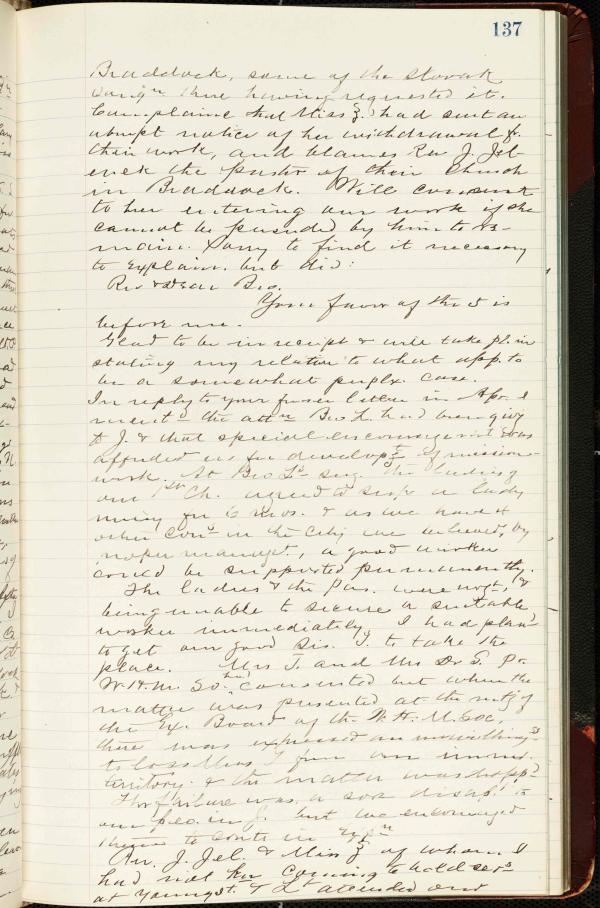 137
Braddock, some of the Slovak
there having requested it.
Complains that Miss Z. had sent an
abrupt notice of her withdrawal fr.
their work, and blames Rev J. Jel-
inek the pastor of their church
in Braddock. Will consent
to her entering our work if she
cannot be persuaded by him to re-
main. Sorry to find it necessary
to explain. but did:
Rev & Dear Bro.
Your favor of the 5 is
before me.
Glad to be in receipt & will take pl. in
stating my relation to what app. to
be a somewhat perplex. case.
In reply to your former letter in Apr. I
the Bro L. had been giv
to J. & that special encouragement was
afforded us for develop't of mission
work. At Bro L's sug. the leading
our Ch. agreed to supp. a lady
for 6 mos. & as we have 4
other Con's in the City we believed, by
proper managmt, a good worker
could be supported permanently.
The ladies & the Pas. were urgt, &
being unable to secure a suitable
worker immediately I had plan'd
to get our good Sis. J. to take the
place. Mrs J. and Mrs Dr S. Pr.
W.H.M. So. had consented but when the
matter was presented at the mtg of
the Ex. Board of the W. H. M. Soc,
there was expressed an unwilling's
to loss Miss J from our immed.
territory. & the matter was dropp'd
Her failure was a sore disapt. to
our peo. in J. but we encouraged
them to contin in
Rev. J. Jel. & Miss Z of whom I
had not kn. coming to hold ser's
at Youngst. & L attended and